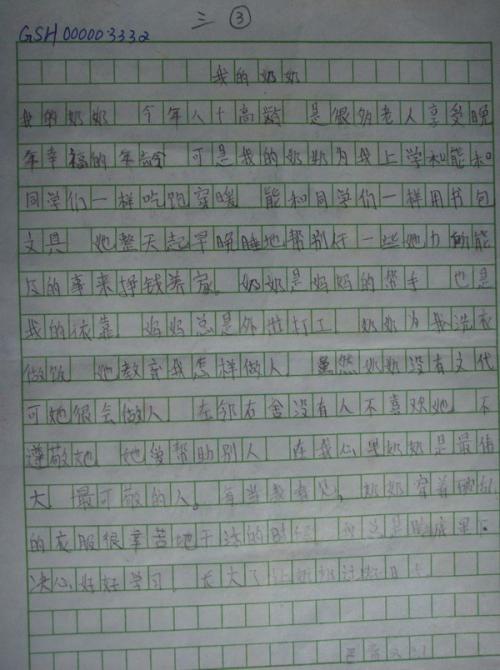 三 ③
GSH000003332
我的奶奶
我的奶奶 今年八十高龄 是很多老人享受晚
年幸福的年龄 可是我的奶奶为我上学和能和
同学们一样吃饱穿暖 能和同学们一样用书包
文具 她整天起早晚睡地帮别人一些她力所能
及的事来挣钱养家。奶奶是妈妈的帮手 也是
我的依靠 妈妈总是外出打工 奶奶为我洗衣
做饭 她教育我怎样做人 虽然奶奶没有文化
可她很会做人 左邻右舍没有人不喜欢她 不
遵敬她 她爱帮助别人 在我心里奶奶是最伟
大 最可敬的人。每当我看见，奶奶穿着
的衣服很辛苦地干活的时 我总是
决心好好学习 长大了让奶奶过